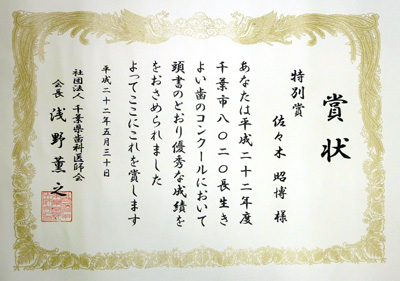 賞状
特別賞
佐々木 昭博 様
あなたは平成二十二年度
千葉市八〇二〇長生き
よい歯のコンクールにおいて
頭書のとおり優秀な成績を
をおさめられました
よってここにこれを賞します
平成二十二年五月三十日
社団法人 千葉県歯科医師会
会長 浅野薫之